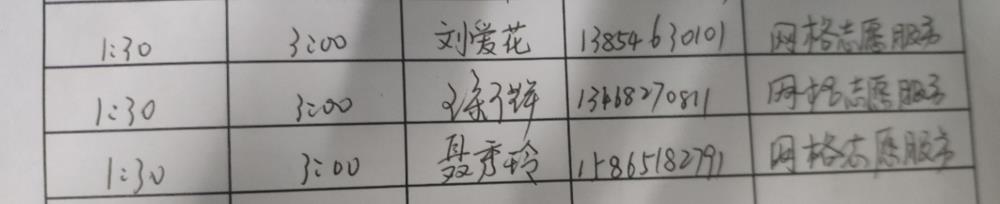 1:30 3:00 刘爱花 13854630101 网格志愿服务
1:30 3:00 13468270811 网格志愿服务
1:30 3:00 聂秀玲 15865182791 网格志愿服务